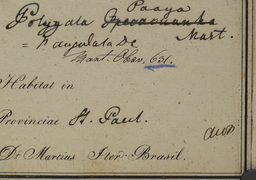 Paaya
Polygala Mart.
= P. angulata DC
Mart. Obs. 631.
Habitat in
Provinciae St. Paul.
Dr Martius Iter Brasil.